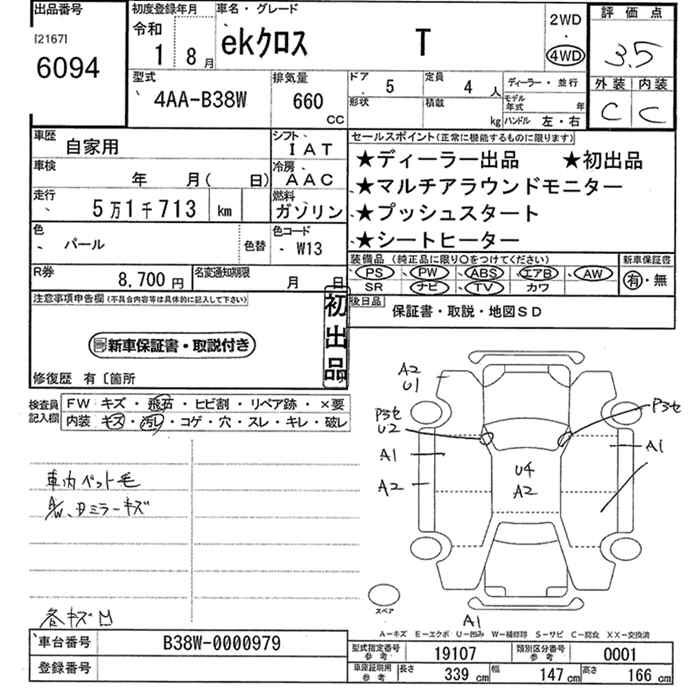 出品番号 初度登録年月 車名・グレード 2WD 評価点
[2167] 令和 ekクロス T ・ 3.5
6094 1 8月 4WD 外装 内装
型式 排気量 ドア 5 定員 4人 ディーラー・並行 C C
4AA-B38W 660 CC 形状 積載 kg モデル年式 年 ハンドル 左・右
車歴 自家用 シフト IAT セールスポイント(正常に機能するものに限ります)
車検 年 月( 日) 冷房 AAC ★ディーラー出品 ★初出品
走行 5万1千713 km 燃料 ガソリン ★マルチアラウンドモニター
★プッシュスタート
色 パール 色替 色コード W13 ★シートヒーター
装備品(純正品に限り○をつけてください) 新車保証書
PS PW ABS エアB AW 有・無
R券 8,700円 名変通知期限 月 日 SR ナビ TV カワ
注意事項申告欄(不具合内容等は具体的に記入して下さい) 初出品 後日品
保証書・取説・地図SD
新車保証書・取説付き
修復歴 有〔箇所
検査員記入欄 FW キズ・飛石・ヒビ割・リペア跡・×要
内装 キズ・汚レ・コゲ・穴・スレ・キレ・破レ
A2
U1
P3セ P3セ
U2
A1 A1
A2 U4
A2
車内ペット毛
A/W、Dミラーキズ
スペア
各キズ凹 A1
A−キズ E−エクボ U−凹み W−補修跡 S−サビ C−腐食 XX−交換済
車台番号 B38W-0000979 型式指定番号 参考 19107 類別区分番号 参考 0001
登録番号 車庫証明用 参考 長さ 339 cm 幅 147 cm 高さ 166 cm